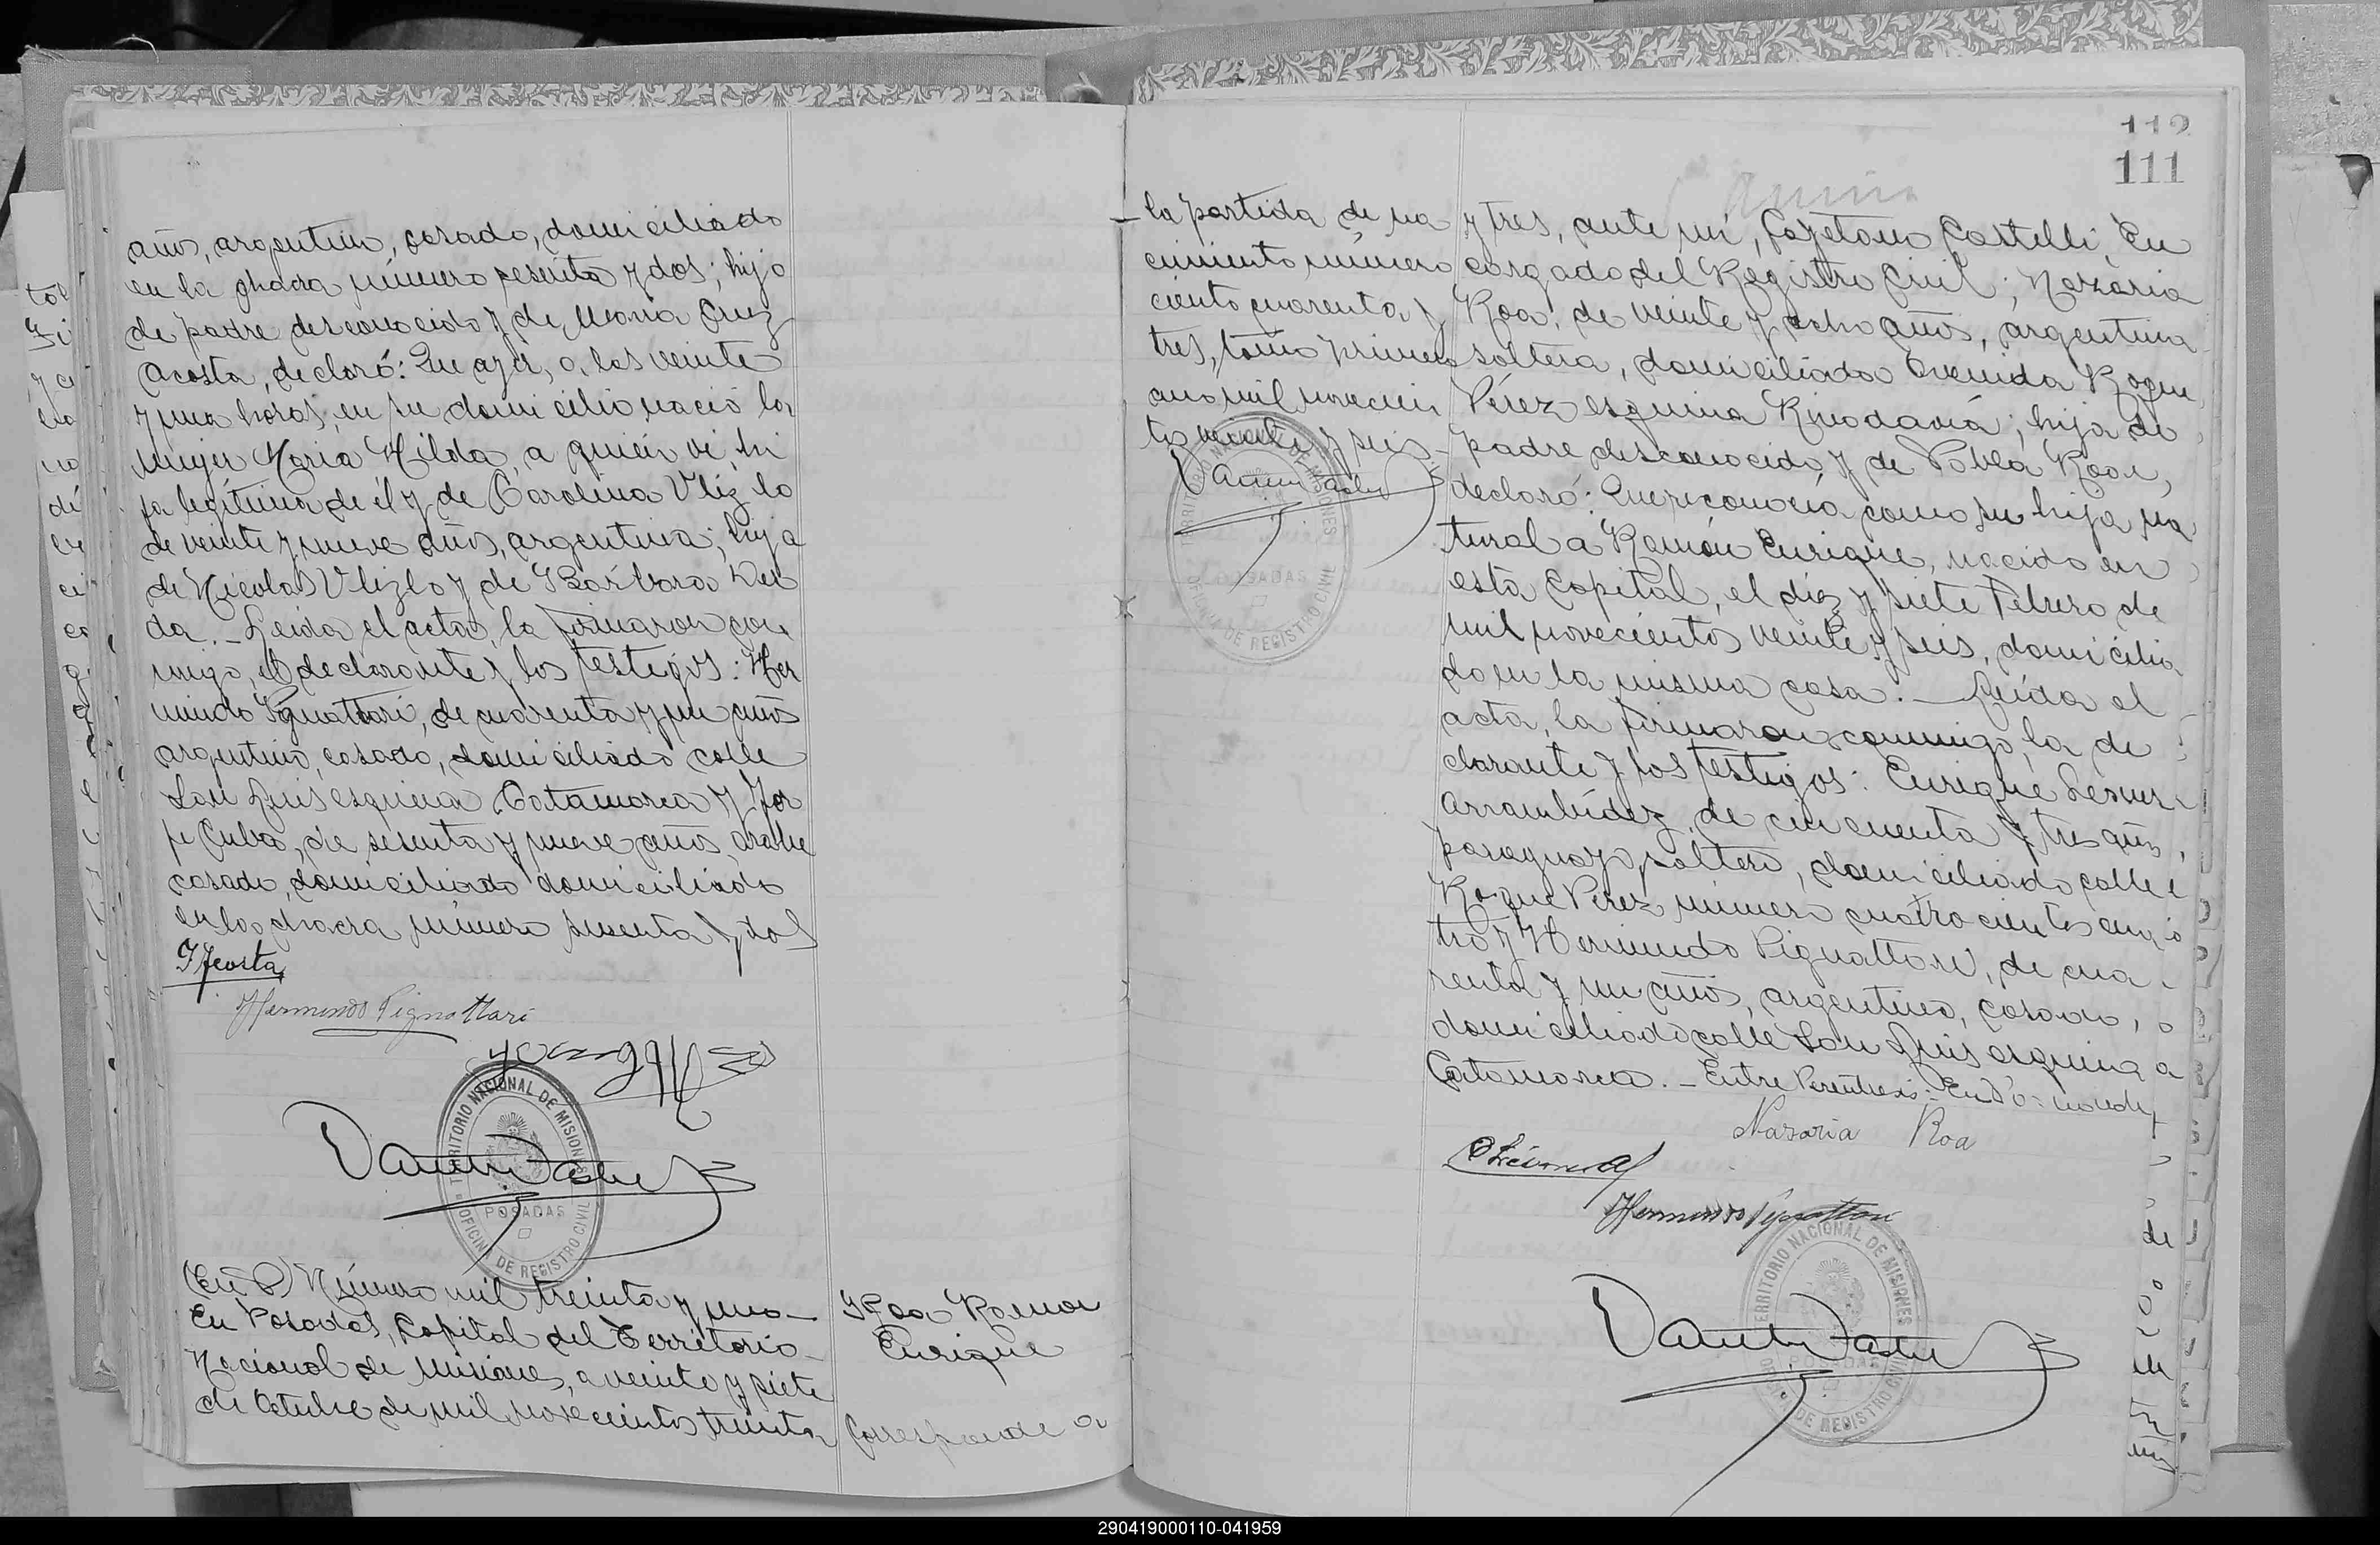 años, argentino, casado, domiciliado
en la chacra número sesenta y dos; hijo
de padre desconocido y de María Cruz
Acosta, declaró: Que ayer, a las veinte
y una horas, en su domicilio nació la
mujer María Hilda, a quien vi, hi
ja legítima de él y de Carolina Vlizlo
de veinte y nueve años, argentina; hija
de Nicolas Vlizlo y de Bárbara
da. - Leida el acta, la firmaron con
migo, el declarante y los testigos: Her
mindo Pignattari, de cuarenta y un años
argentino, casado, domiciliado calle
San Luis esquina Catamarca y Jor
ge Cuba, de sesenta y nueve años, arabe
casado, domiciliado domiciliado
en la chacra número sesenta y dos
Acosta
Hermindo Pignattari
TERRITORIO NACIONAL DE MISIONES
POSADAS
OFICINA DE REGISTRO CIVIL
(En P) Número mil treinta y uno-
En Posadas, Capital del Territorio
Nacional de Misiones, a veinte y siete
de Octubre de mil novecientos treinta
Roa Ramon
Enrique
Corresponde a
112
111
la partida de na
cimiento número
ciento cuarenta y
tres, tomo primero
año mil novecien
tos veinte y seis-
TERRITORIO NACIONAL DE MISIONES
POSADAS
OFICINA DE REGISTRO CIVIL
y tres, ante mí, Cayetano Castelli, En
cargado del Registro Civil; Nazaria
Roa, de veinte y ocho años, argentina
soltera, domiciliada Avenida Roque
Pérez esquina Rivadavia; hija de
padre desconocido y de Pabla Roa,
declaró: Que reconocía como su hijo na
tural a Ramón Enrique, nacido en
esta Capital, el diez y siete Febrero de
mil novecientos veinte y seis, domicilia
do en la misma casa. - Leída el
acta, la firmaron conmigo, la de
clarante y los testigos: Enrique
Arrambídez, de cincuenta y tres años,
paraguayo, soltero, domiciliado calle
Roque Pérez número cuatrocientos cua
tro y Hermindo Pignattari, de cua
renta y un años, argentino, casado,
domiciliado calle San Luis esquina a
Catamarca. - Entre Paréntesis: En P:
Nazaria Roa
Hermindo Pignattari
TERRITORIO NACIONAL DE MISIONES
POSADAS
OFICINA DE REGISTRO CIVIL
290419000110-041959